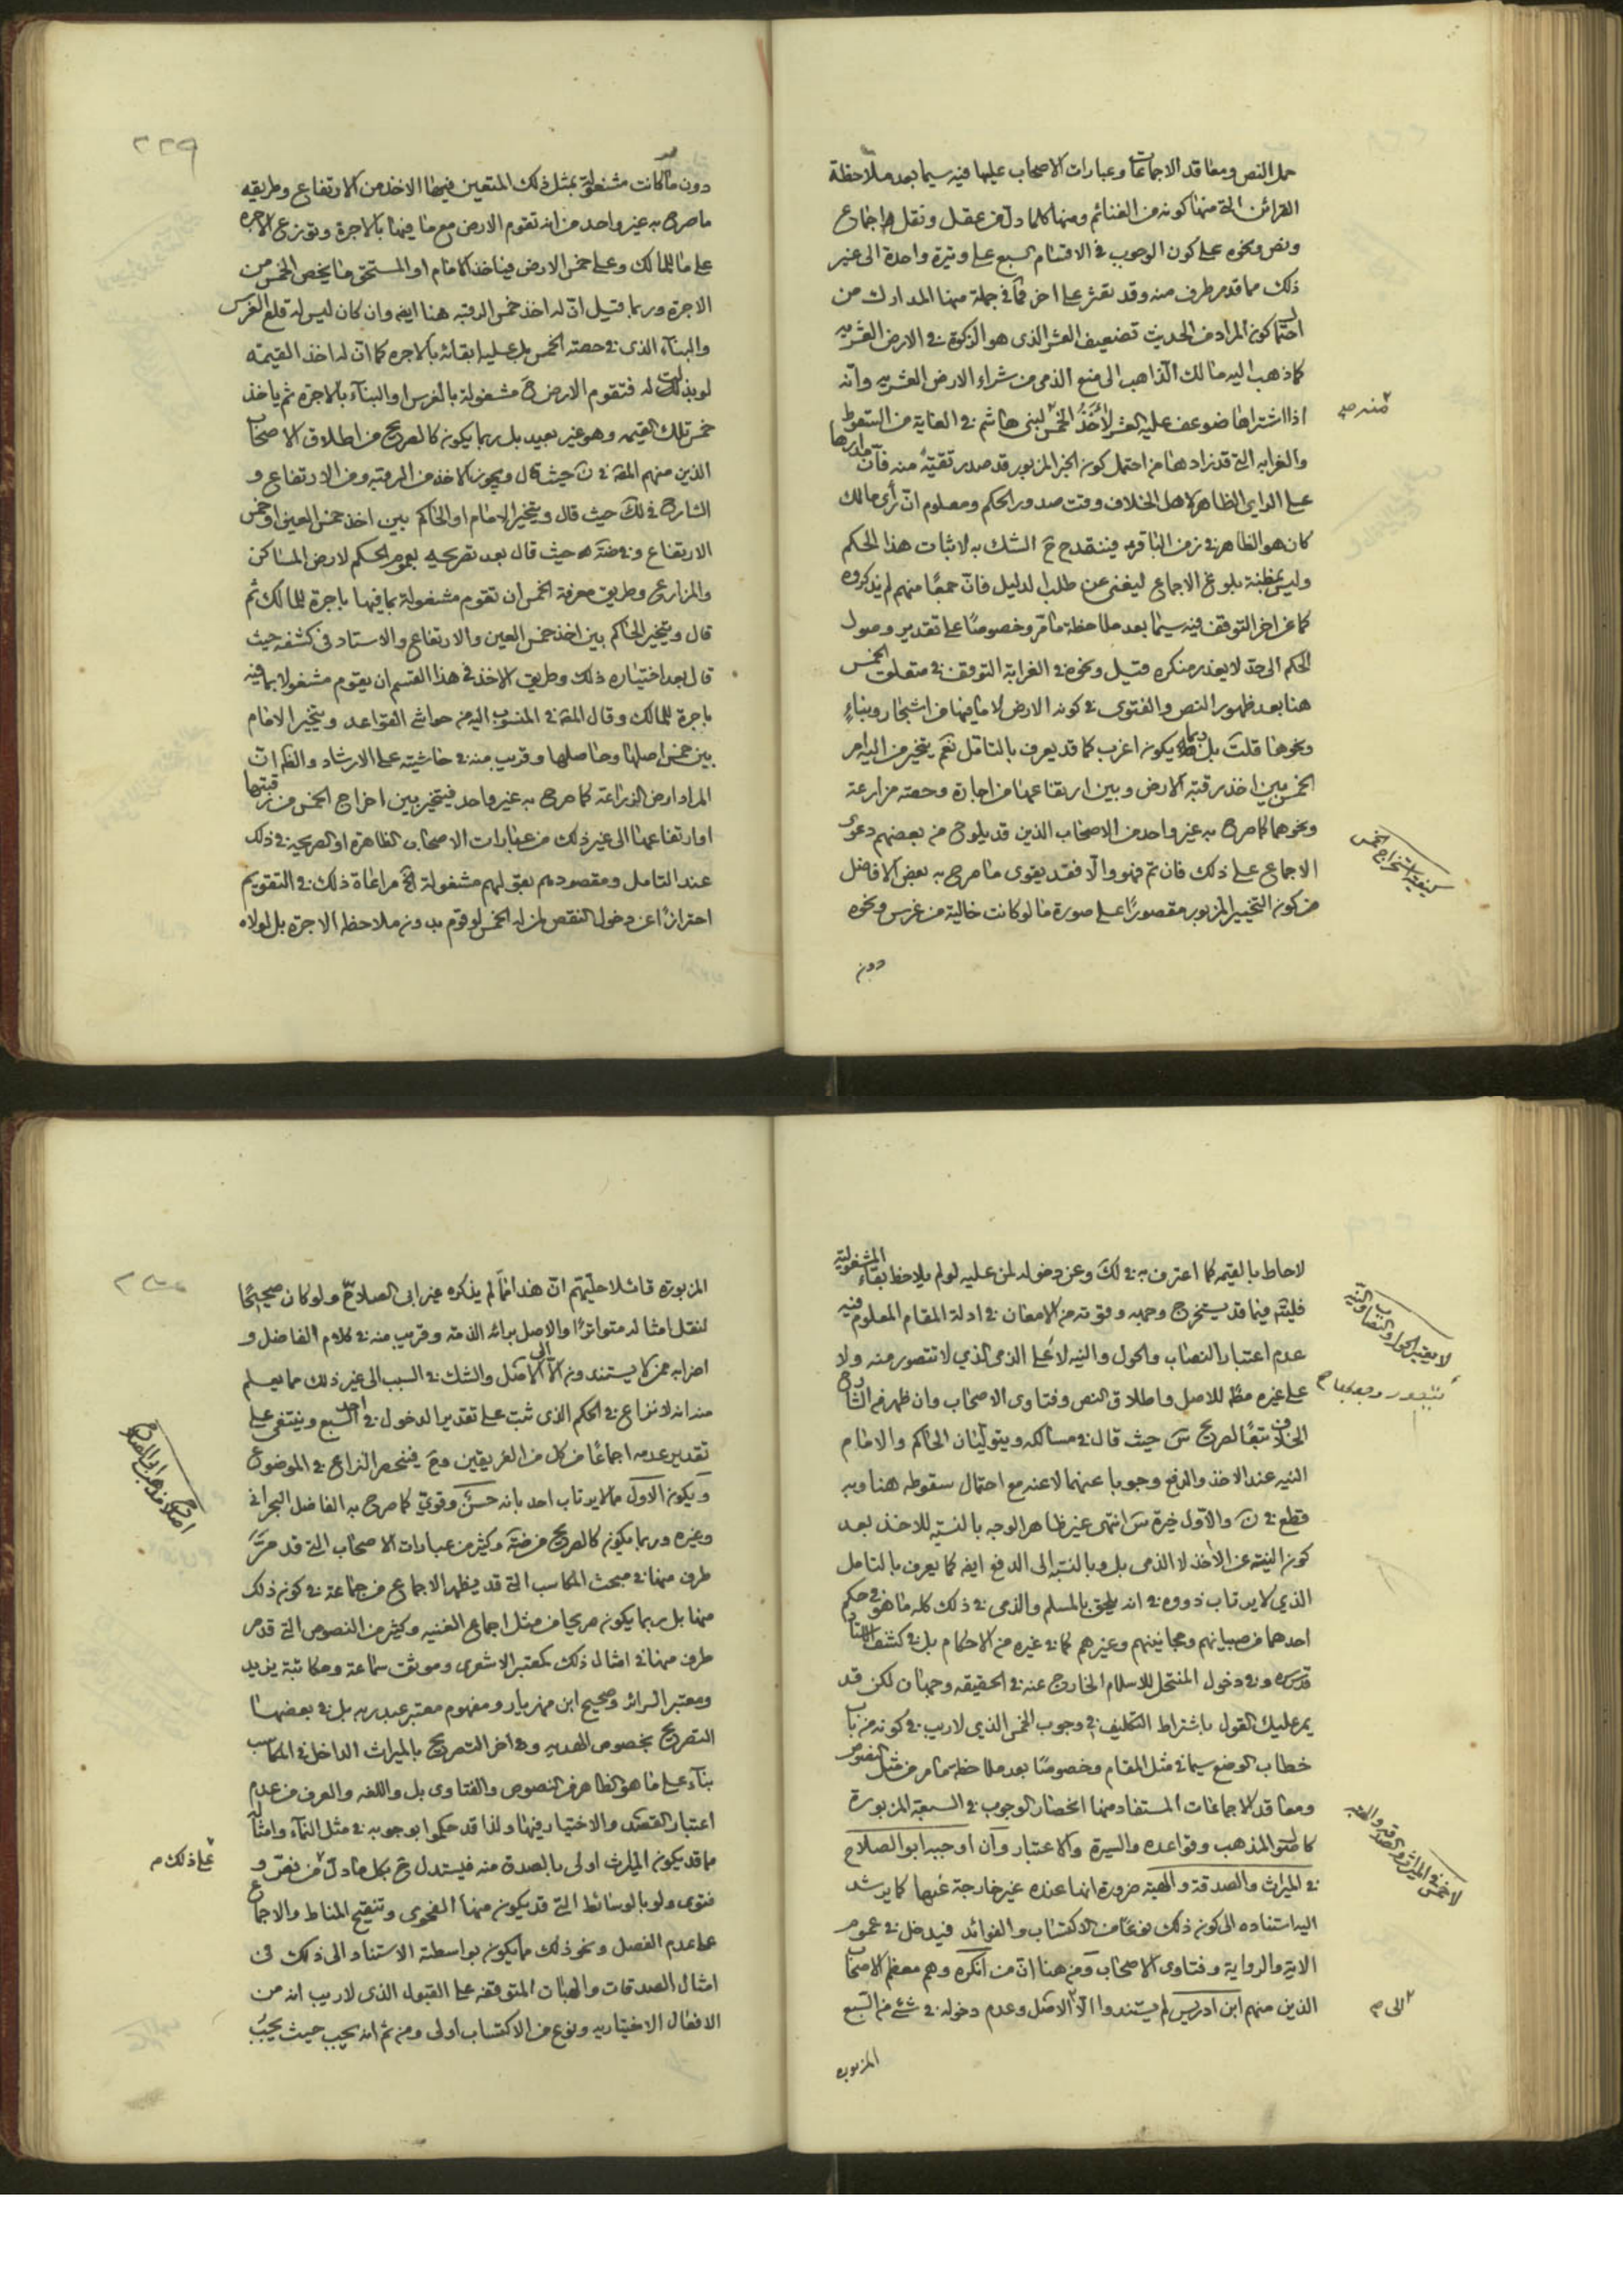 حمل النص ومعاقد الاجماعات وعبارات الاصحاب عليها فيه سيما بعد ملاحظة
القرائن التي منها كونه من الغنائم ومنها كلما دل من عقل ونقل واجماع
ونص ونحوه على كون الوجوب في الاقسام السبع على وتيرة واحدة الى غير
ذلك مما قدمر طرف منه وقد تعثر على اخر فما في جملة منها المدارك من
احتمال كون المراد من الحديث تضعيف العشر الذى هو الزكوة في الارض العشريه
كما ذهب اليه مالك الذاهب الى منع الذمى من شراء الارض العشريه وانه
اذا اشتراها ضوعف عليه العشر لاخذ الخمس لبنى هاشم في الغاية من السقوط
والغرابه التي قد زاد هنا من احتمل كون الخبر المزبور قد صدر تقيةً منه فان مدارها
على الراى الظاهر لاهل الخلاف وقت صدور الحكم ومعلوم ان رأى مالك
كان هو الظاهر في زمن الباقر فينقدح ح الشك به لاثبات هذا الحكم
وليس بمظنة بلوغ الاجماع ليغنى عن طلب الدليل فان جمعًا منهم لم يذكروه
كما عن اخر التوقف فيه سيما بعد ملاحظة مامر وخصوصًا على تقدير وصول
الحكم الى حد لا يعذر منكره قيل ونحوه في الغرابة التوقف في متعلق الخمس
هنا بعد ظهور النص والفتوى في كونه الارض لا ما فيها من اشجار وبناءٍ
ونحوها قلت بل ربما يكون اغرب كما قد يعرف بالتامل نعم يتخير من اليه امر
الخمس بين اخذ رقبة الارض وبين ارتفاعها من اجارة وحصة مزارعة
ونحوهما كما صرح به غير واحد من الاصحاب الذين قد يلوح من بعضهم دعوى
الاجماع على ذلك فان تم فهو والا فقد يقوى ما صرح به بعض الافاضل
من كون التخيير المزبور مقصورًا على صورة ما لو كانت خالية من غرس ونحوه
دون
منه
كيفية استخراج خمس
٢٢٩
دون ما كانت مشغولة بمثل ذلك المتعين فيها الاخذ من الارتفاع وطريقه
ما صرح به غير واحد من انه تقوم الارض مع ما فيها بالاجرة وتوزع الاجرة
على ما للمالك وعلى خمس الارض فياخذ الامام او المستحق ما يخص الخمس من
الاجرة وربما قيل ان له اخذ خمس الرقبة هنا ايض وان كان ليس له قلع الغرس
والبناء الذى في حصة الخمس بل عليه ابقائه بالاجره كما ان له اخذ القيمة
لو بذلت له فتقوم الارض ح مشغولة بالغرس او البناء بالاجرة ثم ياخذ
خمس تلك القيمه وهو غير بعيد بل ربما يكون كالصريح من اطلاق الاصحاب
الذين منهم المقه في ن حيث قال ويجوز الاخذ من الرقبة ومن الارتفاع و
الشارح في لك حيث قال ويتخير الامام او الحاكم بين اخذ خمس العين او خمس
الارتفاع وفي ضة حيث قال بعد تصريحه بعموم الحكم لارض المساكن
والمزارع وطريق معرفة الخمس ان تقوم مشغولة بما فيها باجرة للمالك ثم
قال ويتخير الحاكم بين اخذ خمس العين والارتفاع والاستاد في كشفه حيث
قال بعد اختياره ذلك وطريق الاخذ في هذا القسم ان يقوم مشغولا بما فيه
باجرة للمالك وقال المقه في المنسوب اليه من حواشى القواعد ويتخير الامام
بين خمس اصلها وحاصلها وقريب منه في حاشيته على الارشاد والظ ان
المراد ارض الزراعة كما صرح به غير واحد فيتخير بين اخراج الخمس من رقبتها
او ارتفاعها الى غير ذلك من عبارات الاصحاب الظاهرة او الصريحة في ذلك
عند التامل ومقصودهم بقولهم مشغولة الخ مراعاة ذلك في التقويم
احترازًا عن دخول النقص لمن له الخمس لو قوم بدون ملاحظة الاجرة بل لولاه
لاحاط بالقيمه كما اعترف به في لك وعن دخوله لمن عليه لو لم يلاحظ بقاء المشغولية
فليتم فيما قد يستخرج وجهه وقوته من الامعان في ادلة المقام المعلوم فيه
عدم اعتبار النصاب والحول والنيه لا على الذمى الذي لا تتصور منه ولا
على غيره مطُ للاصل واطلاق النص وفتاوى الاصحاب وان ظهر من الشارح
الخلاف تبعًا لصريح س حيث قال في مسالكه ويتوليان الحاكم والامام
النيه عند الاخذ والدفع وجوبا عنهما لا عنه مع احتمال سقوطه هنا وبه
قطع في ن والاول خيرة س انتهى غير ظاهر الوجه بالنسبة للاخذ بعد
كون النية عن الاخذ لا الذمى بل وبالنسبة الى الدفع ايض كما يعرف بالتامل
الذي لا يرتاب ذووه في انه يلحق بالمسلم والذمى في ذلك كله ما هو في حكم
احدهما من صبيانهم ومجانينهم وغيرهم كما في غيره من الاحكام بل في كشف الاستاد
قدس سره وفي دخول المنتحل للاسلام الخارج عنه في الحقيقه وجهان لكن قد
يمر عليك القول باشتراط التكليف في وجوب الخمس الذي لا ريب في كونه من باب
خطاب الوضع سيما في مثل المقام وخصوصًا بعد ملاحظة ما مر من مثل النصوص
ومعاقد الاجماعات المستفاد منها انحصار الوجوب في السبعة المزبورة
كاصول المذهب وقواعده والسيرة والاعتبار وان اوجبه ابو الصلاح
في الميراث والصدقة والهبة ضرورة انها عنده غير خارجة عنها كما يرشد
اليه استناده الى كون ذلك نوعًا من الاكتساب والفوائد فيدخل في عموم
الاية والرواية وفتاوى الاصحاب ومن هنا ان من انكره وهم معظم الاصحاب
الذين منهم ابن ادريس لم يستندوا الا الاصل وعدم دخوله في شئ من السبع
المزبوره
لا يعتبر الحول والنصاب والنية
لا خمس في الميراث والصدقه والهبه
الى
المزبورة قائلا حليتهم ان هذا مما لم يذكره غير ابى الصلاح ولو كان صحيحًا
لنقل امثاله متواترًا والاصل برائه الذمة وقريب منه في كلام الفاضل و
اضرابه ممن لا يستندون الا الى الاصل والشك في السبب الى غير ذلك مما يعلم
منه انه لا نزاع في الحكم الذى ثبت على تقدير الدخول في احد السبع وينتفى على
تقدير عدمه اجماعًا من كل من الفريقين وح فينحصر النزاع في الموضوع
ويكون الاول مما لا يرتاب احد بانه حسن وقوى كما صرح به الفاضل البحرانى
وغيره وربما يكون كالصريح من ضة وكثير من عبارات الاصحاب التي قد مرَّ
طرف منها في مبحث المكاسب التي قد يظهر الاجماع من جماعة في كون ذلك
منها بل ربما يكون صريحا من مثل اجماع الغنيه وكثير من النصوص التي قدمر
طرف منها في امثال ذلك كمعتبر الاشعرى وموثق سماعة ومكاتبة يزيد
ومعتبر السرائر وصحيح ابن مهزيار ومفهوم معتبر عبدربه بل في بعضها
التصريح بخصوص الهديه وفي اخر التصريح بالميراث الداخل في المكاسب
بناء على ما هو الظاهر من النصوص والفتاوى بل واللغه والعرف من عدم
اعتبار القصد والاختيار فيها ولذا قد حكموا بوجوبه في مثل النماء وامثاله
مما قد يكون الميراث اولى بالصدق منه فيستدل ح بكل ما دل من نص و
فتوى ولو بالوسائط التي قد يكون منها الفحوى وتنقيح المناط والاجماع
على عدم الفصل ونحو ذلك مما يكون بواسطة الاستناد الى ذلك في
امثال الصدقات والهبات المتوقفة على القبول الذى لا ريب انه من
الافعال الاختياريه ونوع من الاكتساب اولى ومن ثم انه يجب حيث يجبُ
على ذلك